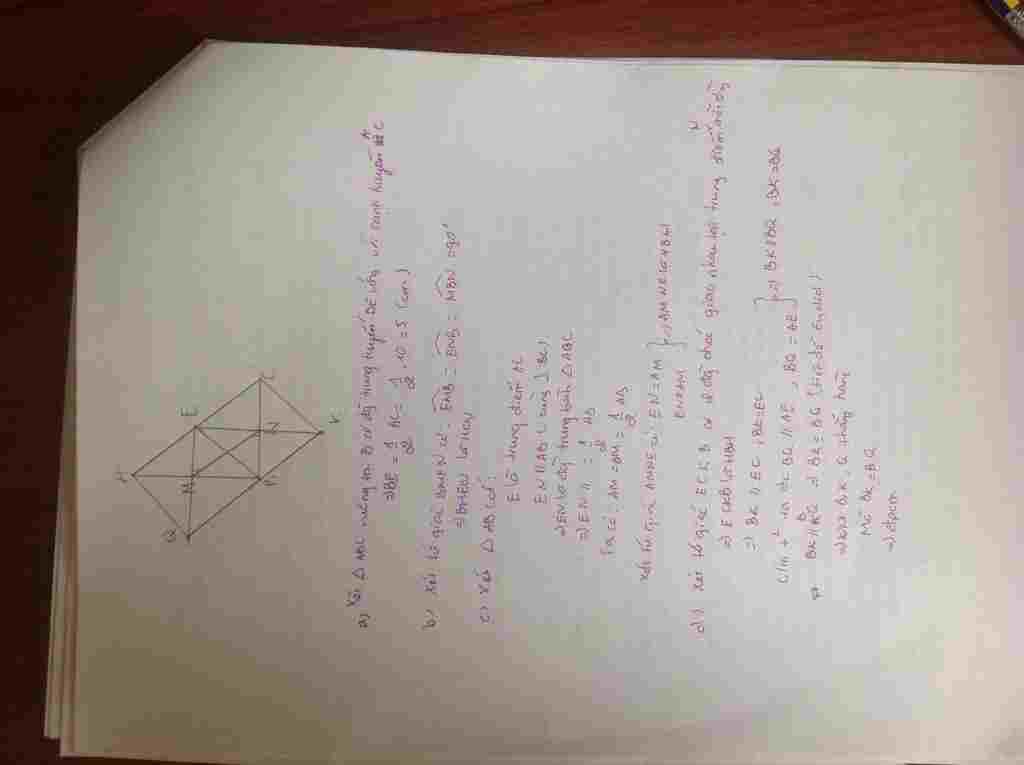 A
Q
M
E
B
N
C
K
a) Xét △ ABC vuông tại B có đg trung tuyến BE ứng với cạnh huyền AC
⇒ BE = 1/2 AC = 1/2 . 10 = 5 (cm)
b) Xét tứ giác BMEN có: EMB = ENB = MBN = 90°
⇒ BMEN là HCN
c) Xét △ ABC có:
E là trung điểm AC
EN // AB (cùng ⊥ BC)
⇒ EN là đg trung bình △ ABC
⇒ EN // = 1/2 AB
Ta có: AM = BM = 1/2 AB
Xét tứ giác AMNE có: EN = AM
EN // AM } ⇒ AMNE là HBH
d) Xét tứ giác ECKB có 2 đg chéo giao nhau tại trung điểm N mỗi đg
⇒ ECKB là HBH
⇒ BK // EC, BK = EC
C/m + ta đc BQ // AE, BQ = AE } ⇒ BK // BQ, BK = BQ
BK // BQ ⇒ BK ≡ BQ (tiên đề Euclid)
⇒ B, K, Q thẳng hàng
Mà BK = BQ
⇒ đpcm